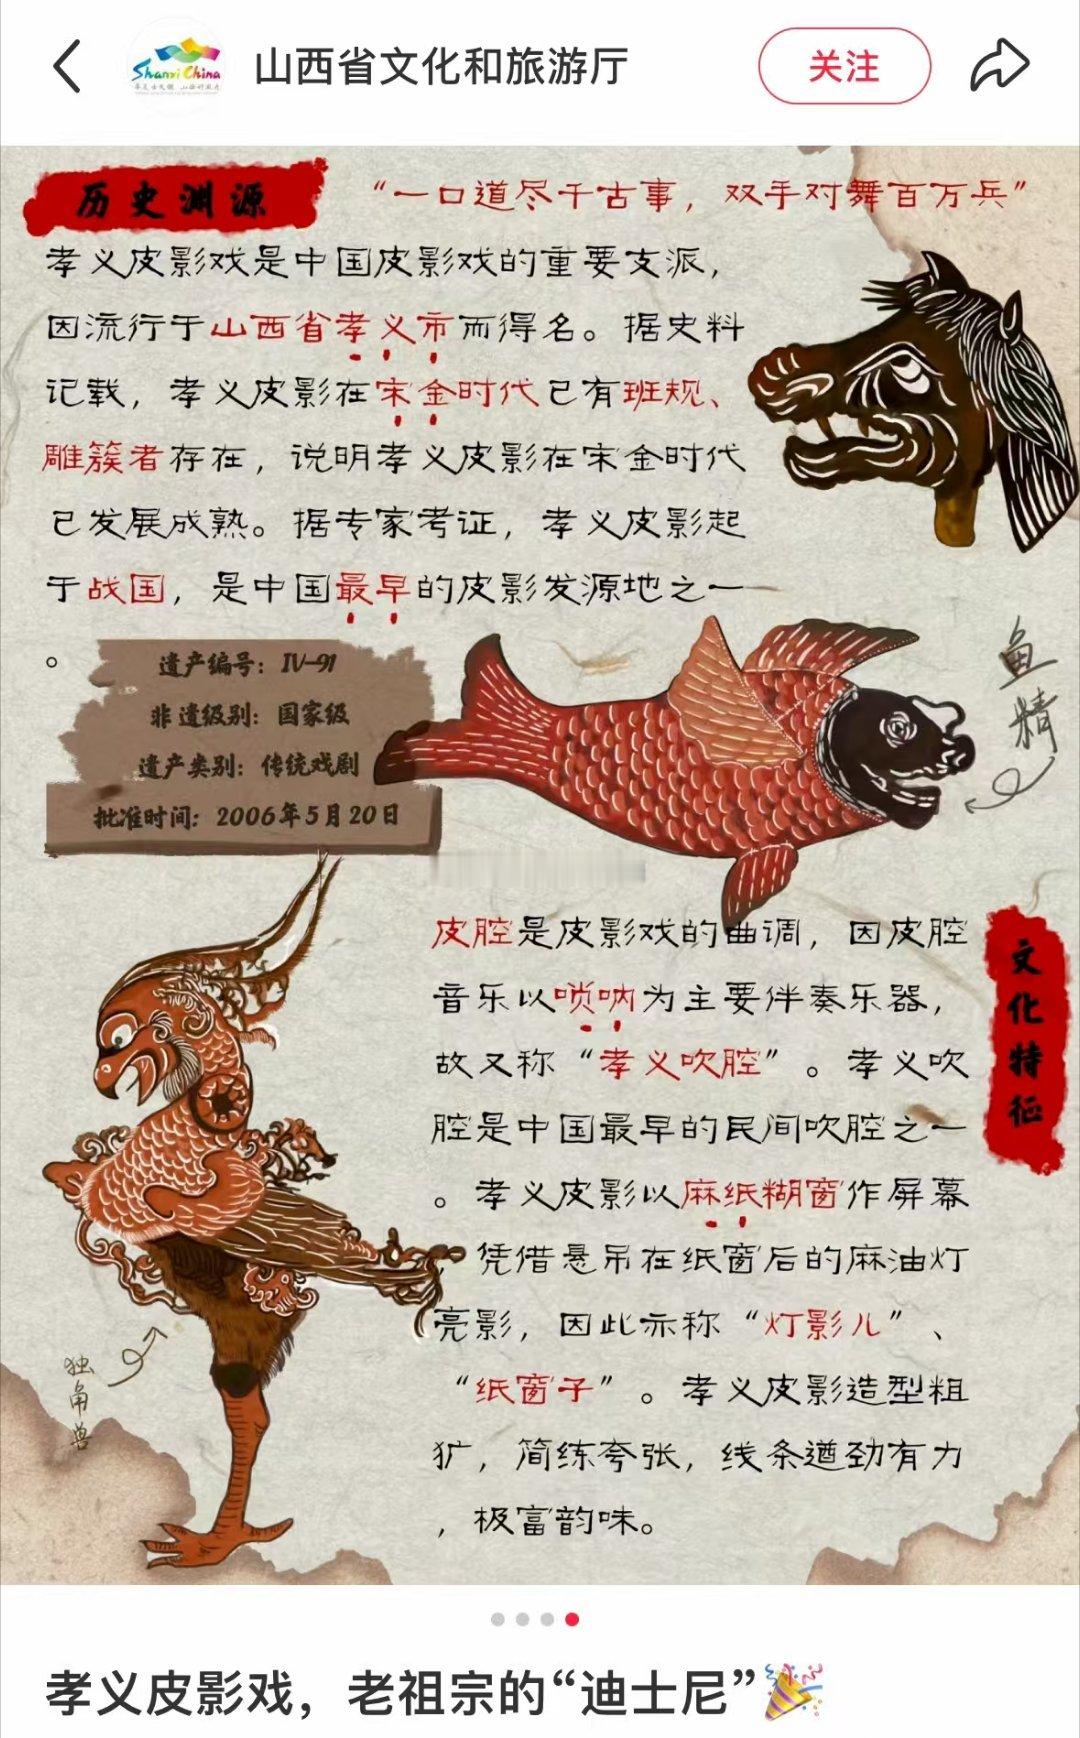 山西省文化和旅游厅
关注
Shanxi China
历史渊源
“一口道尽千古事，双手对舞百万兵”
孝义皮影戏是中国皮影戏的重要支派，
因流行于山西省孝义市而得名。据史料
记载，孝义皮影在宋金时代已有班规、
雕簇者存在，说明孝义皮影在宋金时代
已发展成熟。据专家考证，孝义皮影起
于战国，是中国最早的皮影发源地之一
。
遗产编号：IV-91
非遗级别：国家级
遗产类别：传统戏剧
批准时间：2006年5月20日
鱼精
文化特征
皮腔是皮影戏的曲调，因皮腔
音乐以唢呐为主要伴奏乐器，
故又称“孝义吹腔”。孝义吹
腔是中国最早的民间吹腔之一
。孝义皮影以麻纸糊窗作屏幕
，凭借悬吊在纸窗后的麻油灯
亮影，因此亦称“灯影儿”、
“纸窗子”。孝义皮影造型粗
犷，简练夸张，线条遒劲有力
，极富韵味。
独角兽
孝义皮影戏，老祖宗的“迪士尼”🎉